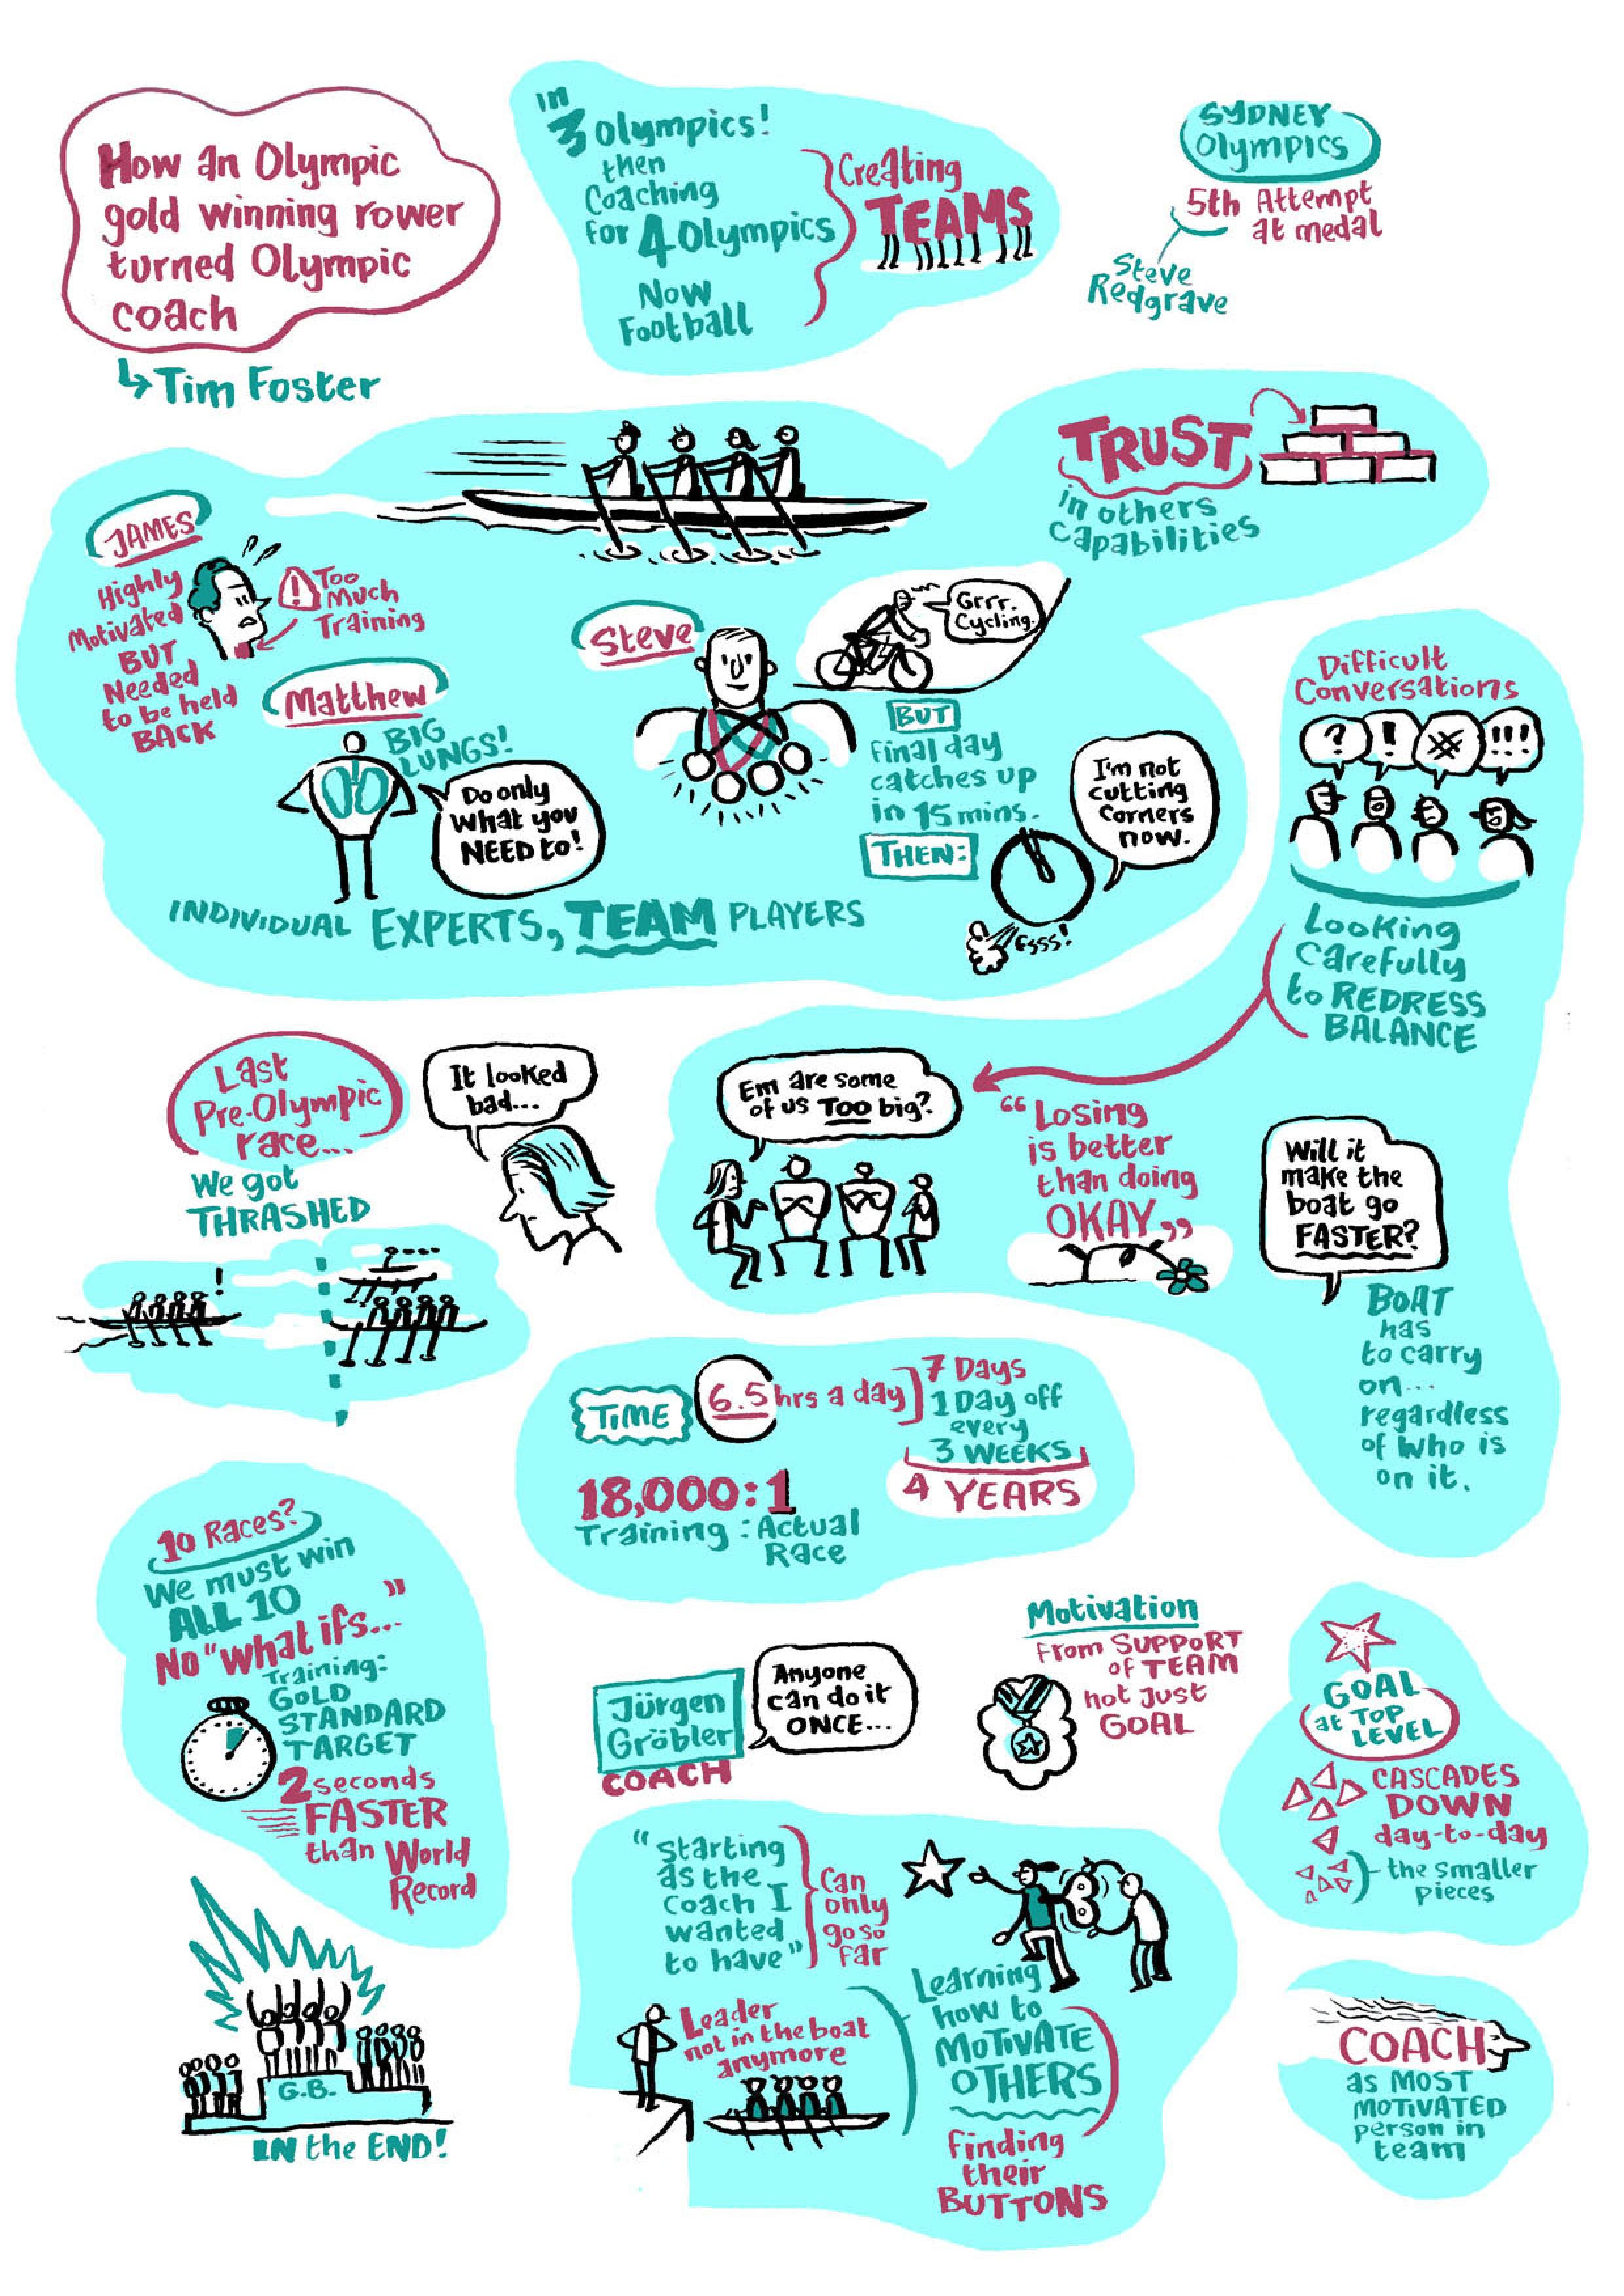 How an Olympic
gold winning rower
turned Olympic
coach
Tim Foster
in
3 olympics!
then
Coaching
for 4 Olympics
Now
Football
Creating
TEAMS
SYDNEY
Olympics
5th Attempt
at medal
Steve
Redgrave
TRUST
in others
capabilities
JAMES
Highly
Motivated
BUT
Needed
to be held
BACK
! Too
Much
Training
Matthew
BIG
LUNGS!
Do only
what you
NEED to!
Steve
Grrr.
Cycling.
BUT
Final day
catches up
in 15 mins.
THEN:
I'm not
cutting
corners
now.
Fsss!
INDIVIDUAL EXPERTS, TEAM PLAYERS
Difficult
Conversations
? ! !!!
Looking
carefully
to REDRESS
BALANCE
Last
Pre-Olympic
race...
We got
THRASHED
!
It looked
bad...
Em are some
of us TOO big?
"Losing
is better
than doing
OKAY"
Will it
make the
boat go
FASTER?
BOAT
has
to carry
on...
regardless
of who is
on it.
TIME
6.5 hrs a day
7 Days
1 Day off
every
3 WEEKS
4 YEARS
18,000:1
Training : Actual
Race
10 Races?
We must win
ALL 10
No "what ifs..."
Training:
GOLD
STANDARD
TARGET
2 seconds
FASTER
than World
Record
G.B.
IN the END!
Jürgen
Gröbler
COACH
Anyone
can do it
ONCE...
Motivation
From SUPPORT
OF TEAM
not Just
GOAL
GOAL
at TOP
LEVEL
CASCADES
DOWN
day-to-day
the smaller
pieces
"Starting
as the
Coach I
wanted
to have"
Can
only
go so
far
Leader
not in the boat
anymore
Learning
how to
MOTIVATE
OTHERS
Finding
their
BUTTONS
COACH
as MOST
MOTIVATED
person in
team